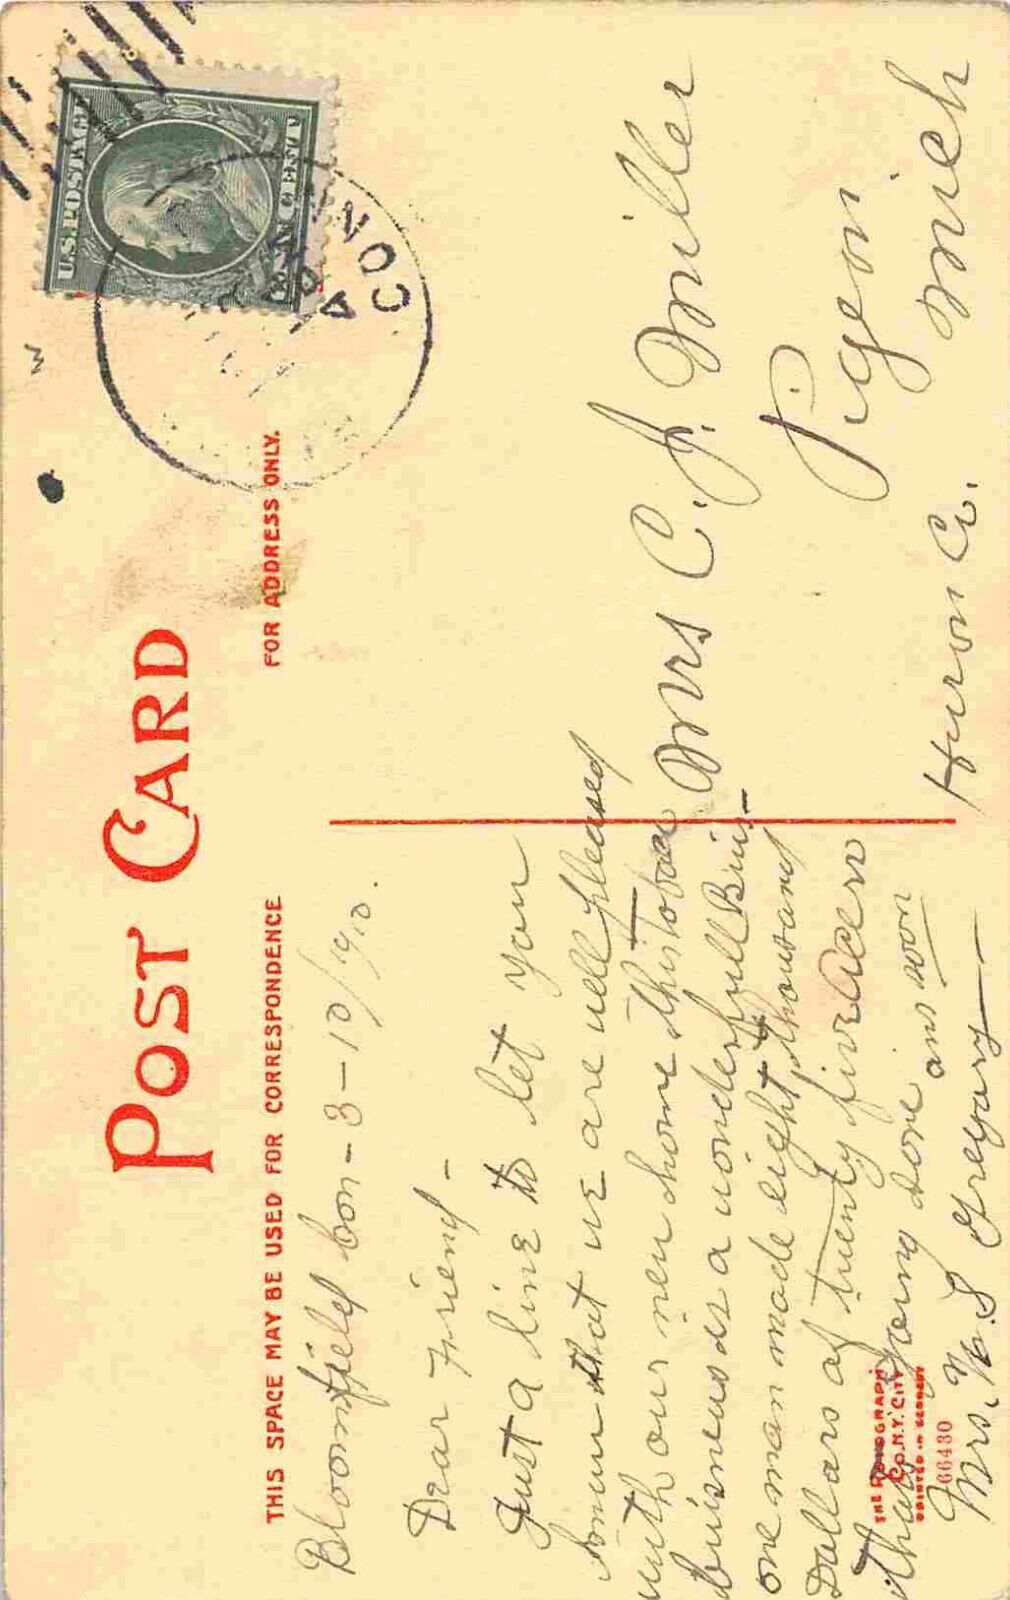 POST CARD
THIS SPACE MAY BE USED FOR CORRESPONDENCE
FOR ADDRESS ONLY.
U.S. POSTAGE
ONE CENT
CONN
Bloomfield Con - 3 - 10/1910.
Dear Friend -
Just a line to let you
know that we are well pleased
with our new home this tobacc
buisness is a wonderfull Buis-
one man made eight thousand
Dallars of twenty five Acers
thats going some ans soon
Mrs. W. S Gregory
Mrs C. J. Miller
Pigeon
Huron Co. Mich
THE ROTOGRAPH
CO. N.Y. CITY
PRINTED IN GERMANY
66430